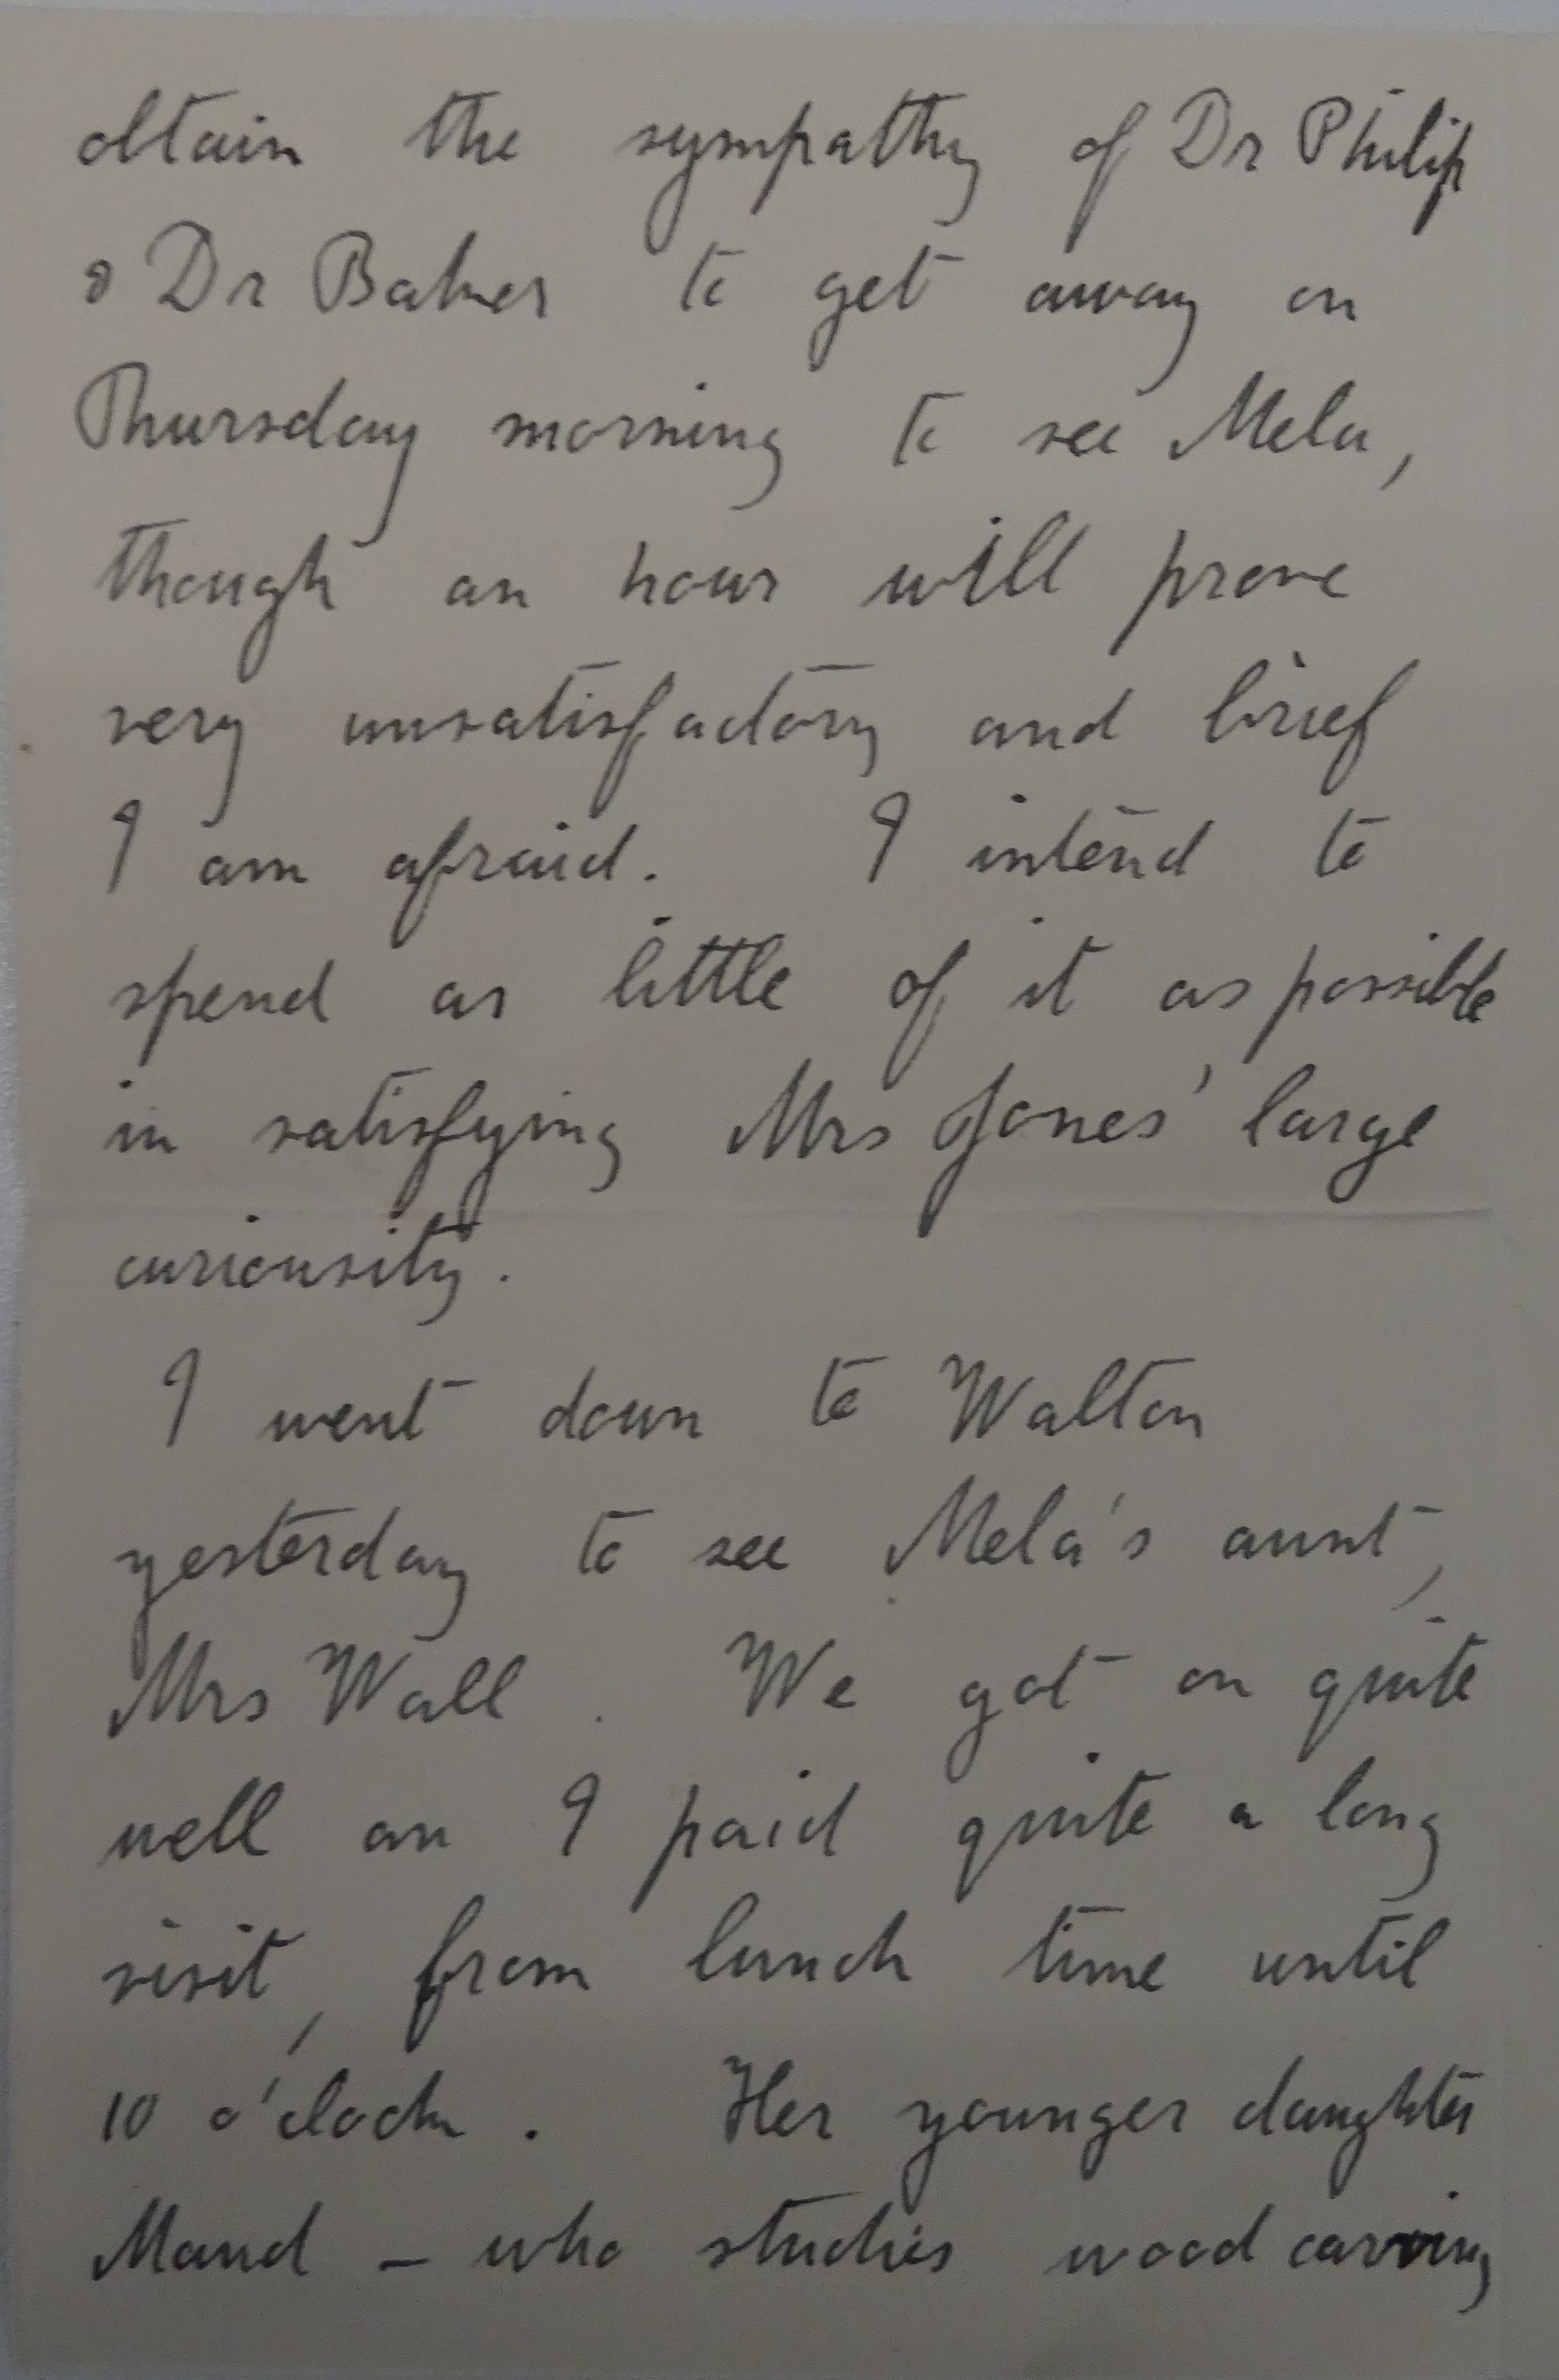 obtain the sympathy of Dr Philip
& Dr Baker to get away on
Thursday morning to see Mela,
though an hour will prove
very unsatisfactory and brief
I am afraid. I intend to
spend as little of it as possible
in satisfying Mrs Jones' large
curiousity.
I went down to Walton
yesterday to see Mela's aunt,
Mrs Wall. We got on quite
well an I paid quite a long
visit, from lunch time until
10 o'clock. Her younger daughter
Maud – who studies wood carving